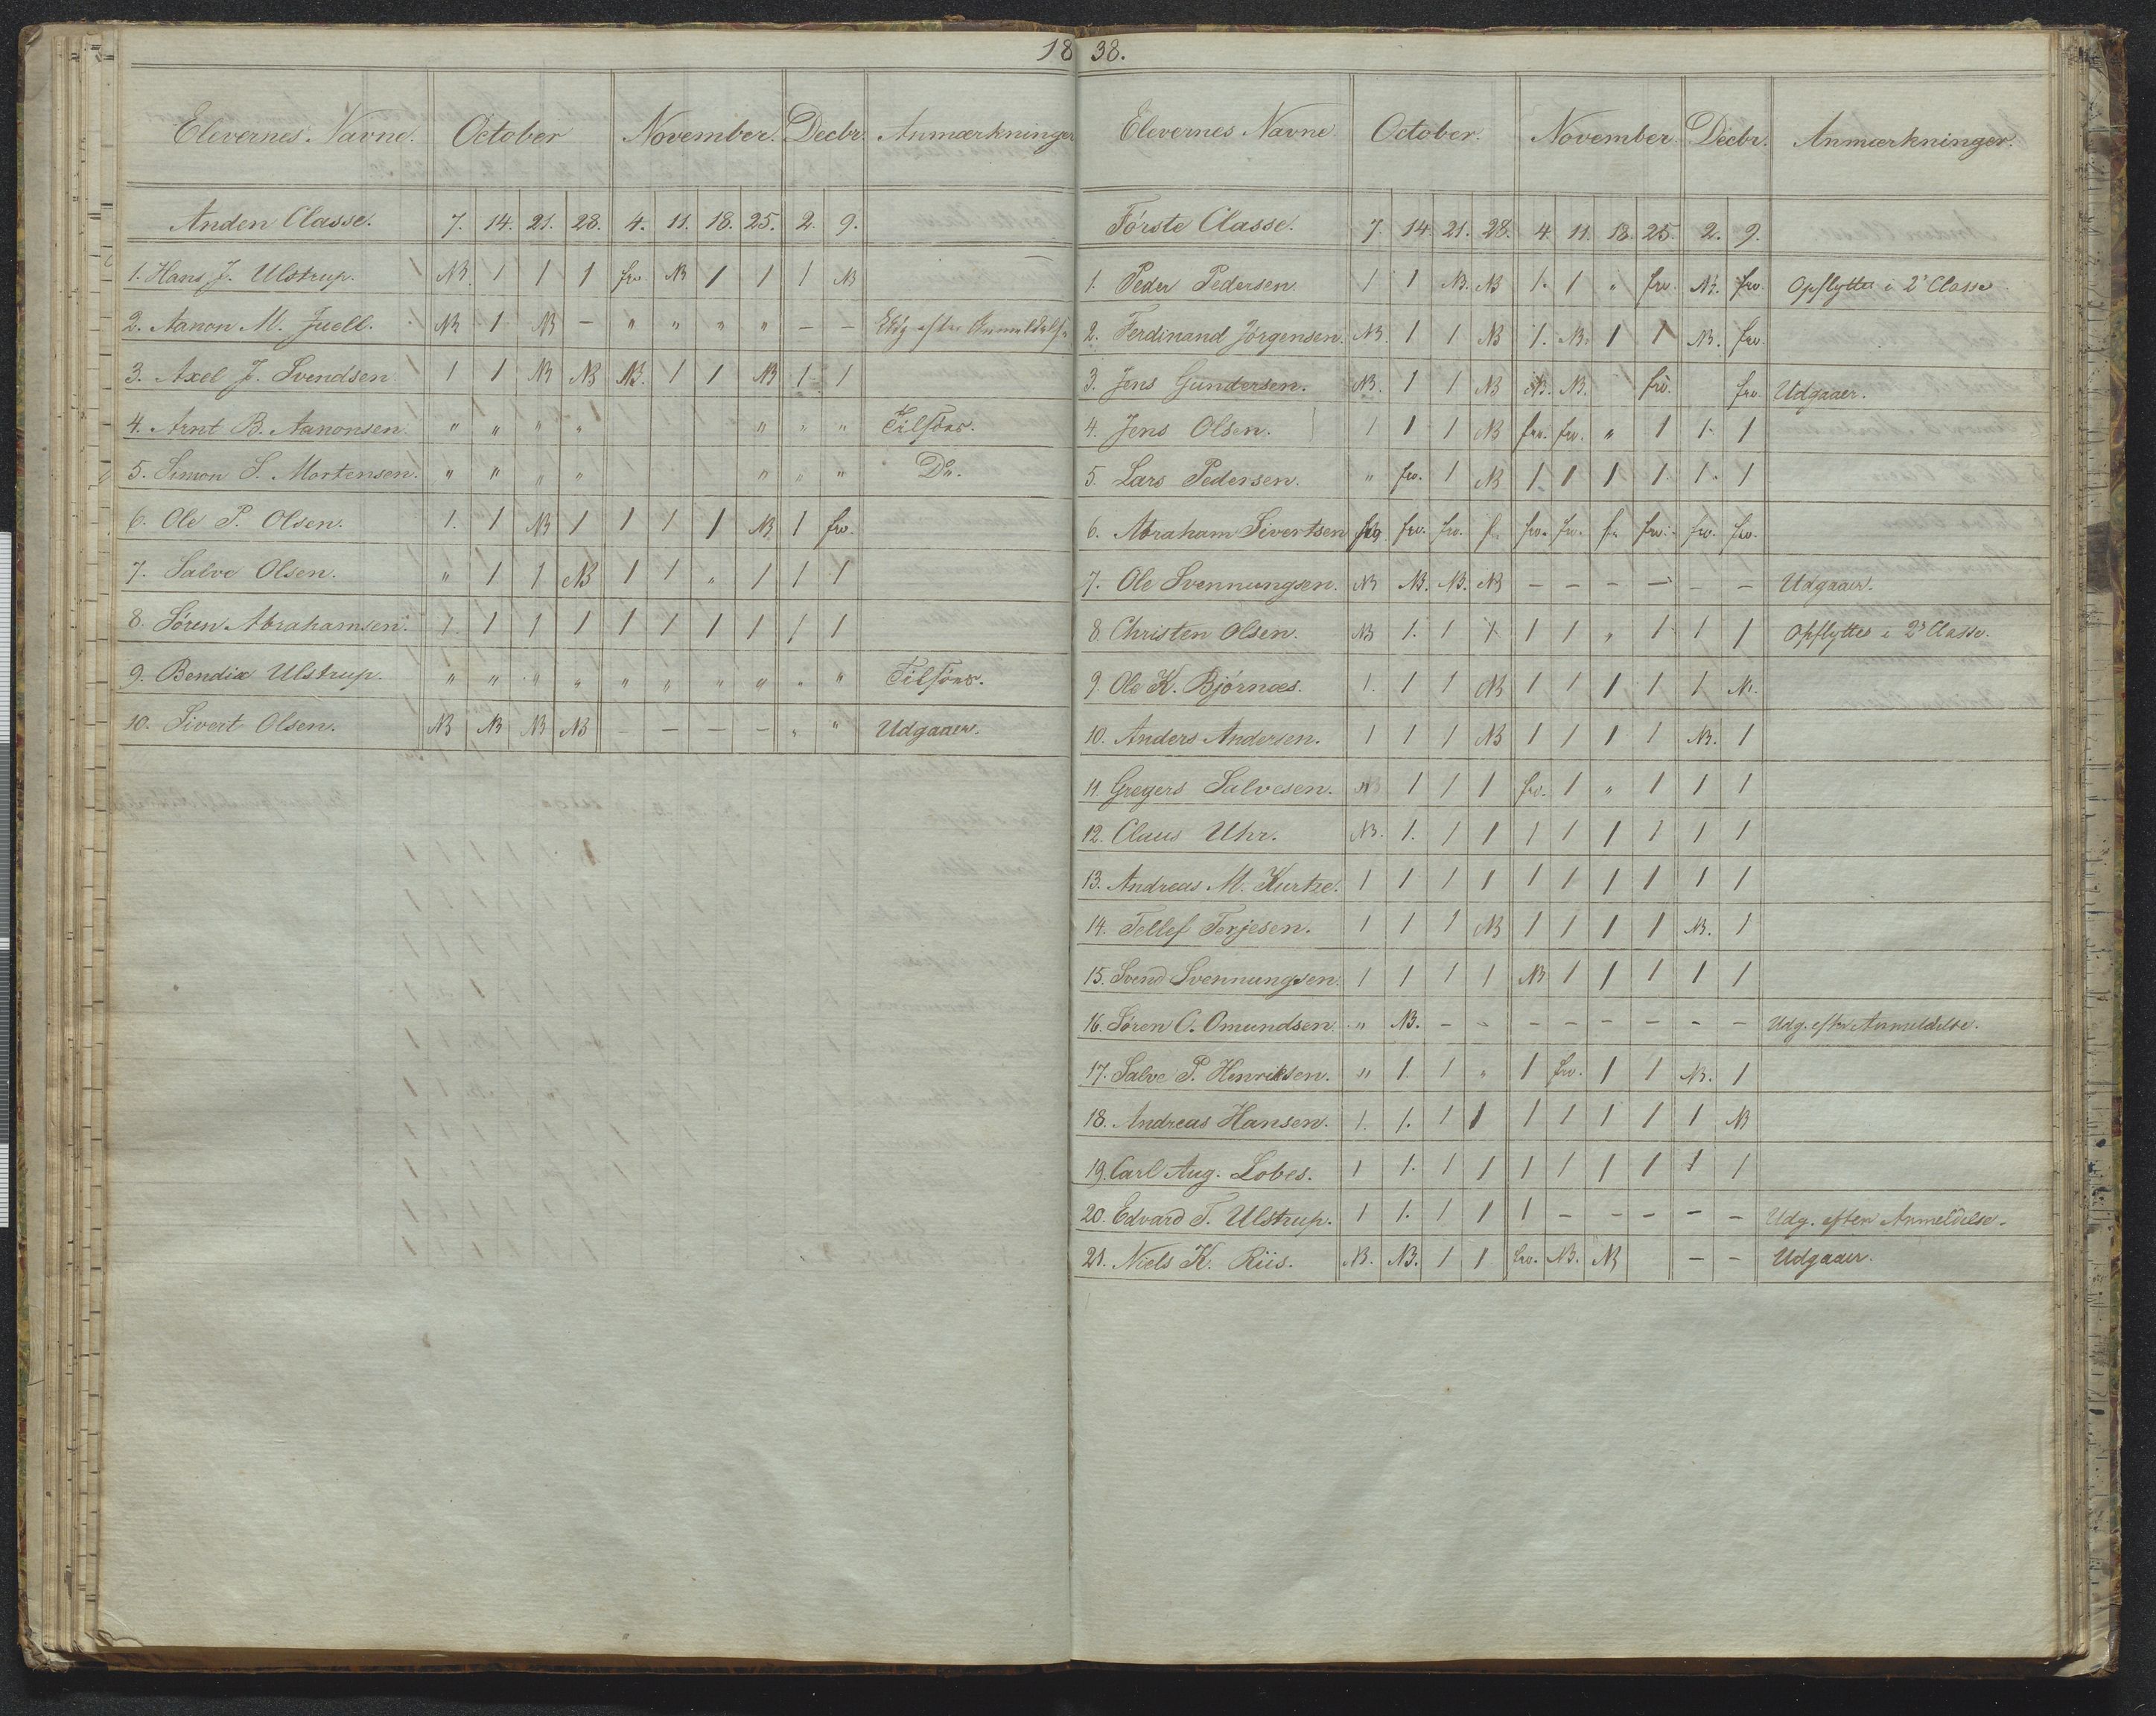 1838.
Elevernes Navne. October November. Decbr. Anmærkninger
Anden Classe. 7. 14. 21. 28. 4. 11. 18. 25. 2. 9.
1. Hans J. Ulstrup. NB. 1 1 1 frv. NB 1 1 1 NB
2. Aanon M. Juell. NB 1 NB – " " " " – – Udg efter Anmeldelse
3. Axel J. Svendsen 1 1 NB NB NB. 1 1 NB 1 1
4. Arnt B. Aanonsen. " " " " " " " Tilsöes.
5. Simon S. Mortensen. " " " " " " " Do.
6. Ole P. Olsen. 1. 1 NB 1 1 1 1 NB 1 frv.
7. Salve Olsen. " 1 1 NB 1 1 " 1 1 1
8. Søren Abrahamsen. 1 1 1 1 1 1 1 1 1 1
9. Bendix Ulstrup. " " " " " " " " " " Tilsöes.
10. Sivert Olsen. NB NB NB NB – – – – " " Udgaaer.
Elevernes Navne. October. November Decbr. Anmærkninger.
Første Classe. 7. 14. 21. 28. 4. 11. 18. 25. 2. 9.
1. Peder Pedersen. 1 1 NB. NB 1. 1 " frv. NB. frv. Opflyttes i 2 Classe
2. Ferdinand Jørgensen. NB. 1 1 NB 1. NB. 1 1 NB. frv.
3. Jens Gundersen. NB. 1 1 NB NB. NB. frv. frv. Udgaaer.
4. Jens Olsen. 1 1 1 NB frv. frv. " 1 1. 1
5. Lars Pedersen. " frv. 1 NB 1 1 1 1 1. 1
6. Abraham Sivertsen frv. frv. frv. f. frv. frv. fr. frv. frv. frv.
7. Ole Svennungsen. NB NB. NB. NB – – – – – – Udgaaer.
8. Christen Olsen. NB 1. 1 1 1 1 " 1 1 1 Opflyttes i 2 Classe.
9. Ole K. Bjørnæs. 1. 1 1 NB 1 1 1 1 1 NB.
10. Anders Andersen. 1 1 1 NB 1 1 1 1 NB. 1
11. Gregers Salvesen. NB 1 1 1 frv. 1 " 1 1 1
12. Claus Uhr. NB. 1. 1 1 1 1 1 1 1 1
13. Andreas M. Kurtze. 1 1 1 1 1 1 1 1 1 1
14. Tellef Terjesen. 1 1 1 NB 1 1 1 1 NB. 1
15. Svend Svennungsen. 1 1 1 1 NB 1 1 1 1 1
16. Søren C. Omundsen. " NB. – – – – – – – – Udg. efter Anmeldelse.
17. Salve P. Henriksen. " 1. 1 " 1 frv. 1 1 NB. 1
18. Andreas Hansen. 1. 1. 1 1 1 1 1 1 1 NB
19. Carl Aug. Lobes. 1 1. 1 1 1 1 1 1 1 1
20. Edvard T. Ulstrup. 1 1. 1 1 1 – – – – – Udg. efter Anmeldelse.
21. Niels K. Riis. NB. NB. 1 1 frv. NB. NB – – Udgaaer.